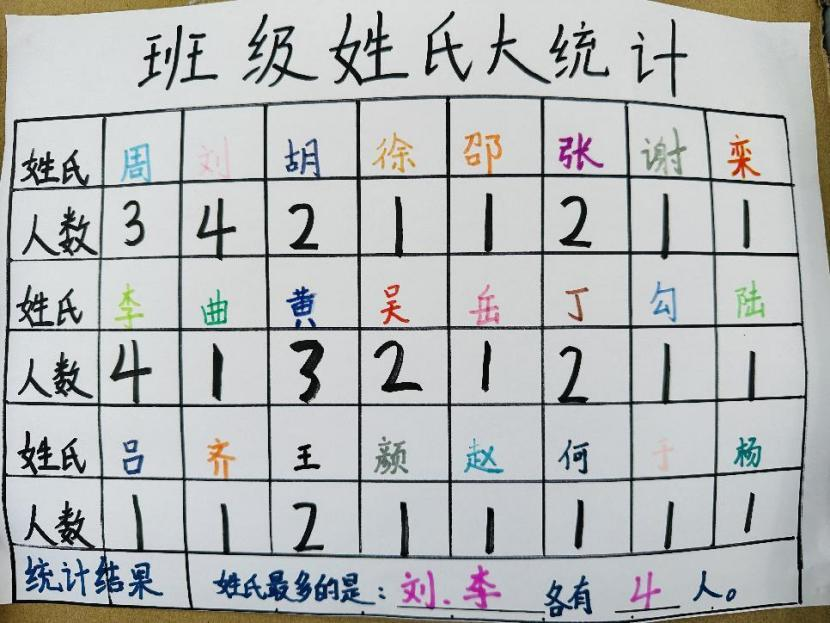 班级姓氏大统计
姓氏 周 刘 胡 徐 邵 张 谢 栾
人数 3 4 2 1 1 2 1 1
姓氏 李 曲 黄 吴 岳 丁 勾 陆
人数 4 1 3 2 1 2 1 1
姓氏 吕 齐 王 颜 赵 何 于 杨
人数 1 1 2 1 1 1 1 1
统计结果 姓氏最多的是：刘、李 各有 4 人。